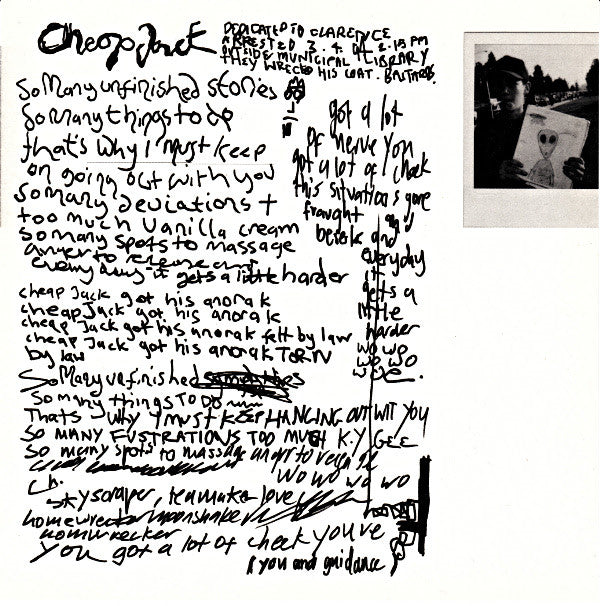 Cheapo Jack
DEDICATED TO CLARENCE
ARRESTED 3.4.01 2.15 PM
OUTSIDE MUNICIPAL LIBRARY
THEY WRECKED HIS COAT. BASTARDS.
So Many unfinished stories
So many things to do
that's why I must keep
on going out with you
so many deviations +
too much Vanilla cream
so many spots to massage
anger to release and
everyday it gets a little harder
cheap Jack got his anorak
cheap Jack got his anorak
cheap Jack got his anorak felt by law
cheap Jack got his anorak TORN
by law
So Many unfinished
So many things TO DO
Thats why I must KEEP HANGING OUT WIT YOU
So MANY FUSTRATIONS TOO MUCH K.Y GEE
So many spots to massage anger to
wo wo wo wo
Ch.
skyscraper, teamake love
homewrecker moonshake
homewrecker
You got a lot of cheek you've
you and guidance
got a lot
of nerve you
got a lot of cheek
this situations gone
fraught and
beserk and
everyday
it
gets a
little
harder
wo wo
wo wo
woe.